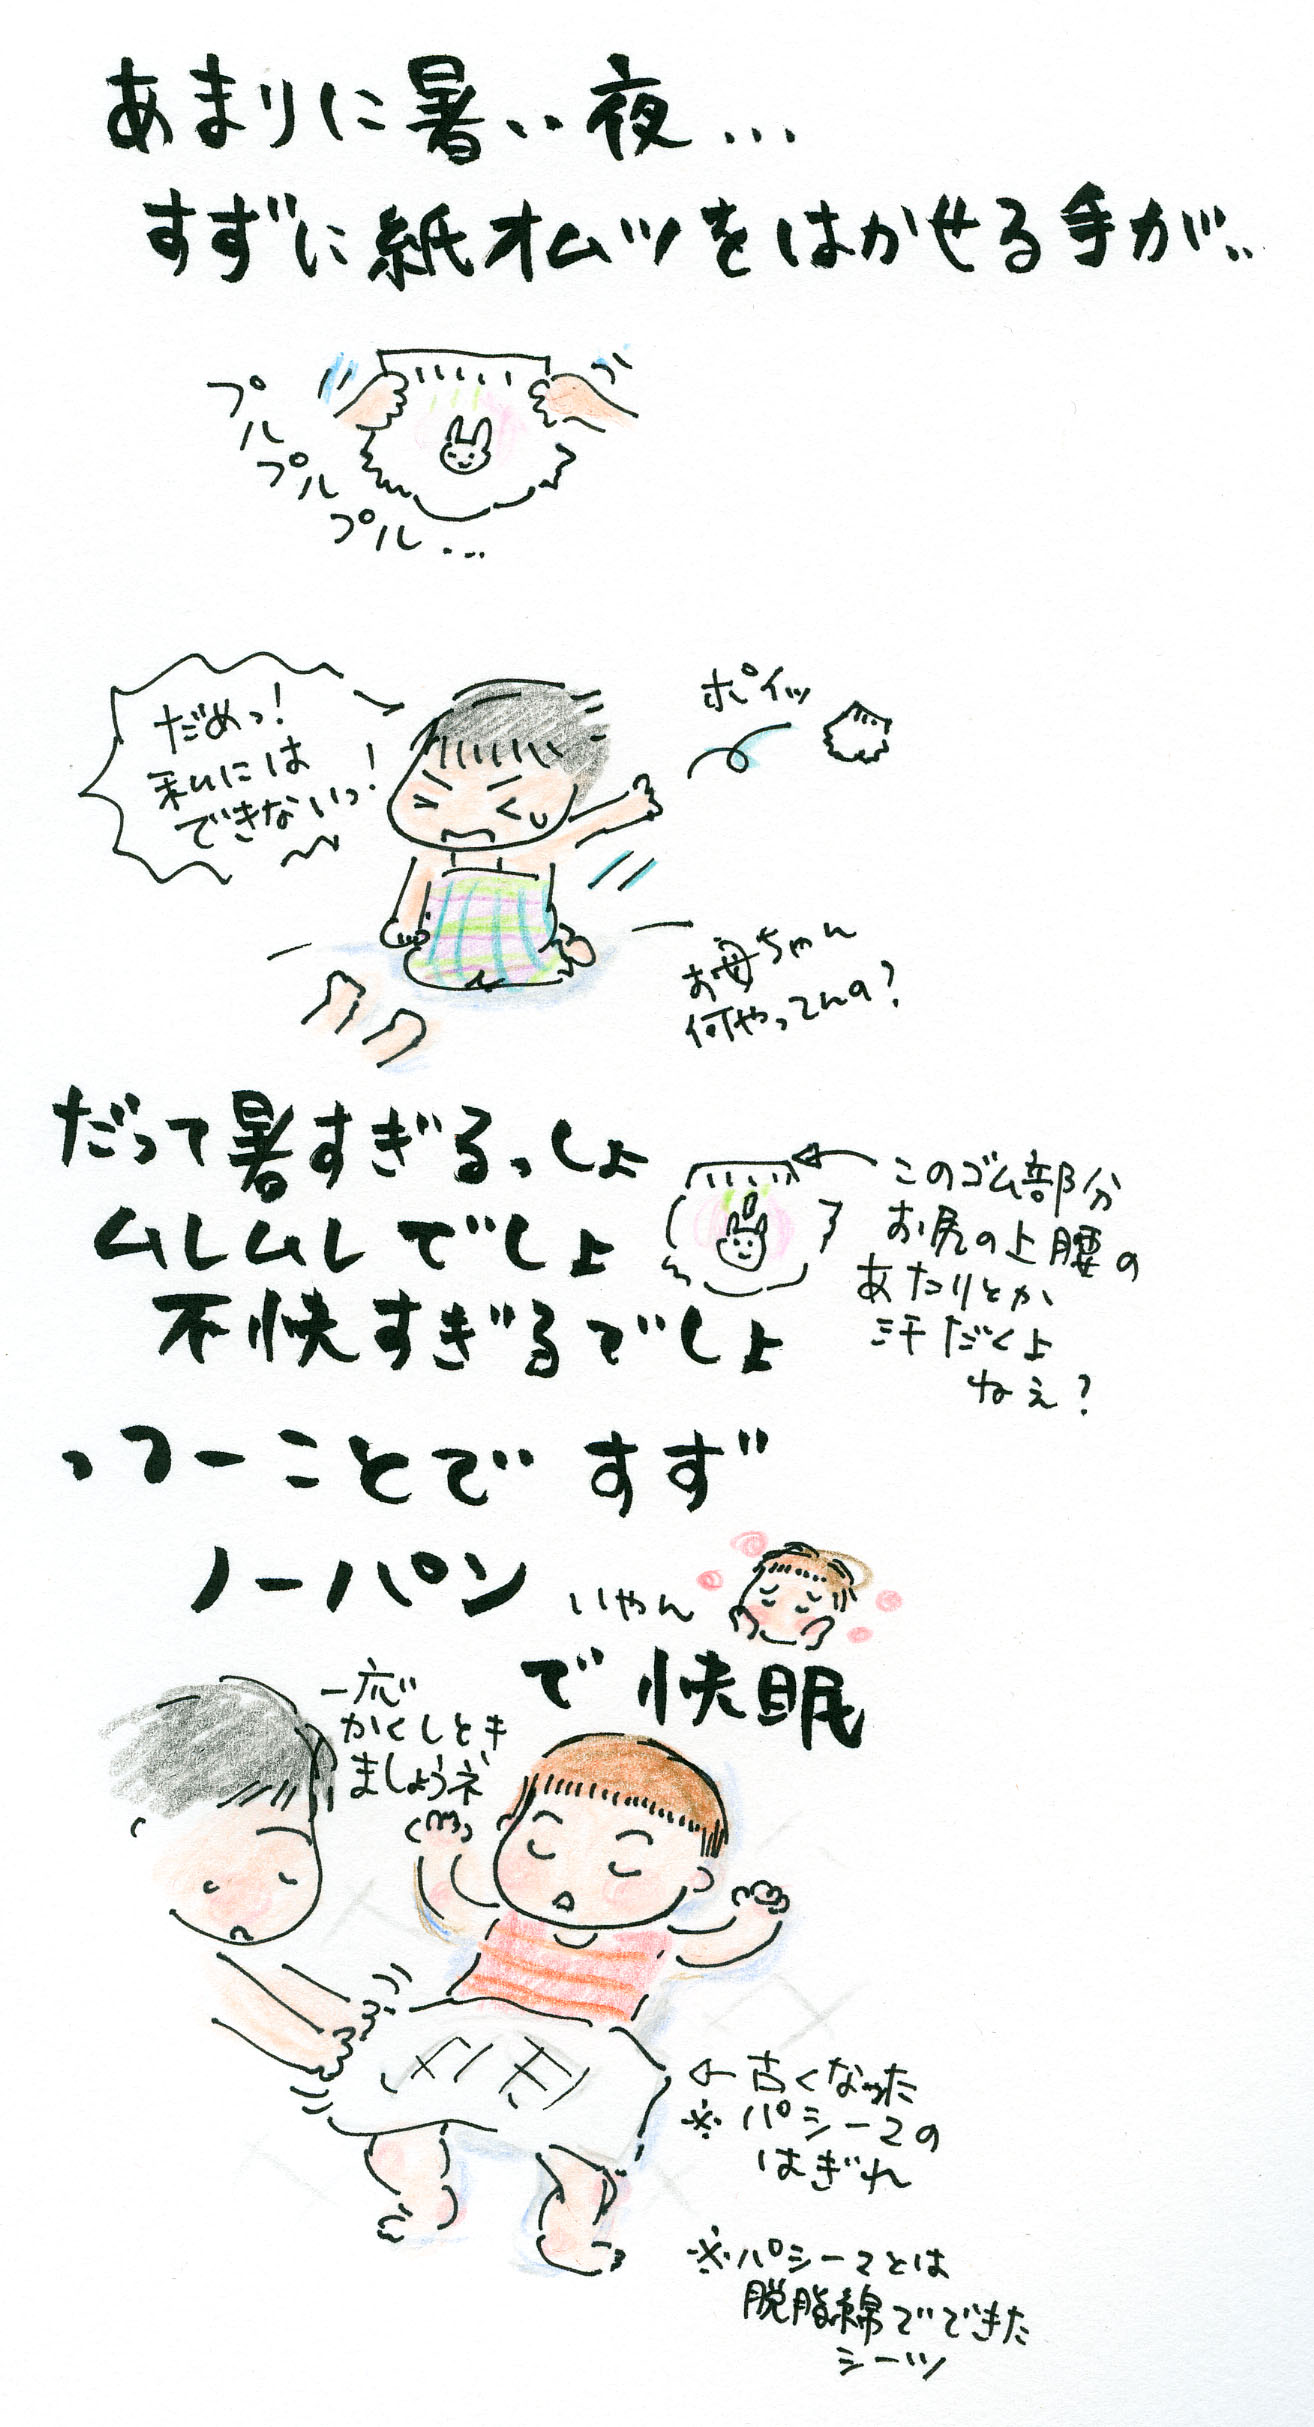 あまりに暑い夜...
すずに紙オムツをはかせる手が..
プル
プル
プル...
だめっ!
私には
できないっ!
ポイッ
お母ちゃん
何やってんの?
だって暑すぎるっしょ
ムレムレでしょ
不快すぎるでしょ
このゴム部分
お尻の上腰の
あたりとか
汗だくよ
ねぇ?
ってーことで すず
ノーパン
いやん
で快眠
一応
かくしとき
ましょうネ
←古くなった
※パシーマの
はぎれ
※パシーマとは
脱脂綿でできた
シーツ